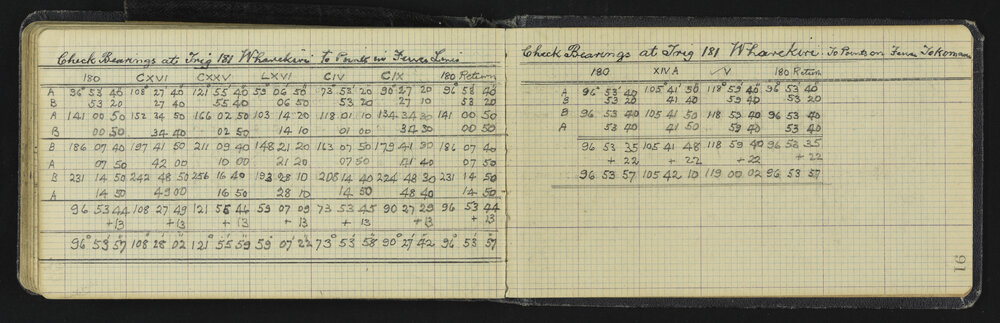 Check Bearings at Trig 181 Wharekiri to Points in Fence Lines
180 CXVI CXXV LXVI CIV CIX 180 Return
A 96° 53' 40" 108° 27' 40" 121° 55' 40" 59° 06' 50" 73° 53' 20" 90° 27' 20" 96° 53' 40"
B 53 20 27 40 55 40 06 50 53 20 27 10 53 20
A 141 00 50 152 34 50 166 02 50 103 14 20 118 01 10 134 34 30 141 00 50
B 00 50 34 40 02 50 14 10 01 00 34 30 00 50
B 186 07 40 197 41 50 211 09 40 148 21 20 163 07 50 179 41 30 186 07 40
A 07 50 42 00 10 00 21 20 07 50 41 40 07 50
B 231 14 50 242 48 50 256 16 40 193 28 10 208 14 40 224 48 30 231 14 50
A 14 50 49 00 16 50 28 10 14 50 48 40 14 50
96 53 44 108 27 49 121 55 46 59 07 09 73 53 45 90 27 29 96 53 44
+13 +13 +13 +13 +13 +13 +13
96° 53' 57" 108° 28' 02" 121° 55' 59" 59° 07' 22" 73° 53' 58" 90° 27' 42" 96° 53' 57"
Check Bearings at Trig 181 Wharekiri To Points on Fence Tokomaru
180 XIVA V 180 Return
A 96° 53' 40" 105° 41' 50" 118° 59' 40" 96° 53' 40"
B 53 20 41 40 59 40 53 20
B 96 53 40 105 41 50 118 59 40 96 53 40
A 53 40 41 50 59 40 53 40
96 53 35 105 41 48 118 59 40 96 53 35
+22 +22 +22 +22
96 53 57 105 42 10 119 00 02 96 53 57
91